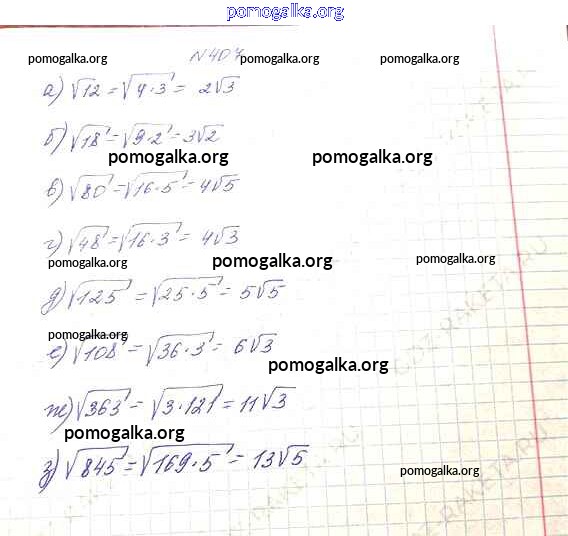 pomogalka.org
№407
pomogalka.org pomogalka.org pomogalka.org
а) √12 = √4·3 = 2√3
б) √18 = √9·2 = 3√2
pomogalka.org pomogalka.org
в) √80 = √16·5 = 4√5
г) √48 = √16·3 = 4√3
pomogalka.org pomogalka.org pomogalka.org
д) √125 = √25·5 = 5√5
pomogalka.org
е) √108 = √36·3 = 6√3
pomogalka.org
ж) √363 = √3·121 = 11√3
pomogalka.org
з) √845 = √169·5 = 13√5
pomogalka.org